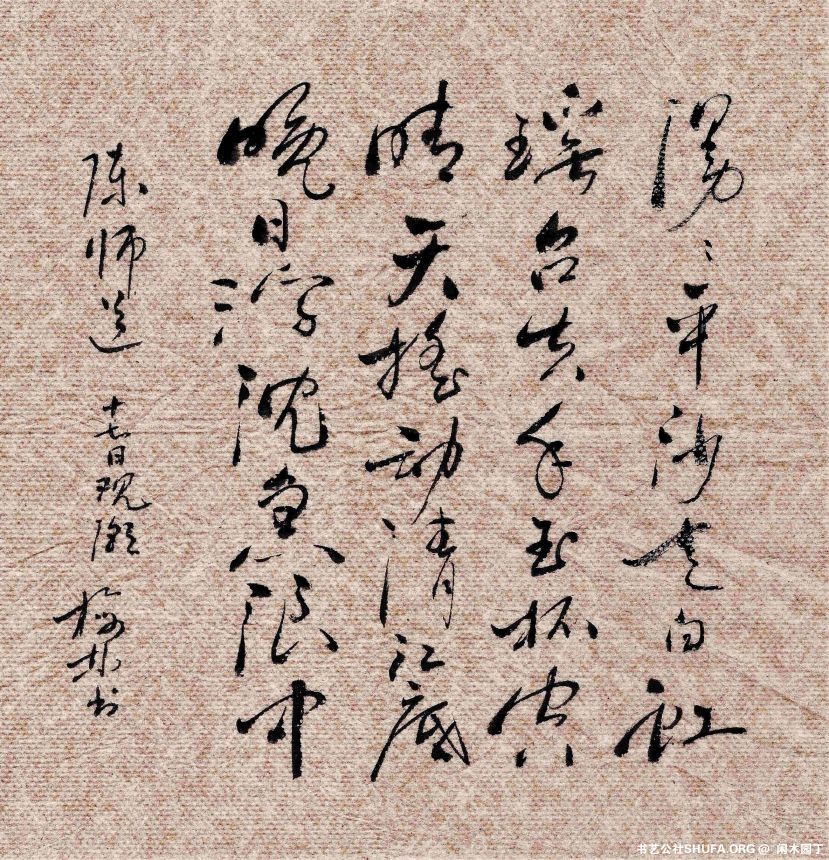 漫〻平沙走白虹
瑶台失手玉杯空
晴天摇动清江底
晚日浮沈急浪中
陈师道 十七日观潮 梅林书
书艺公社SHUFA.ORG @ 闲木园丁